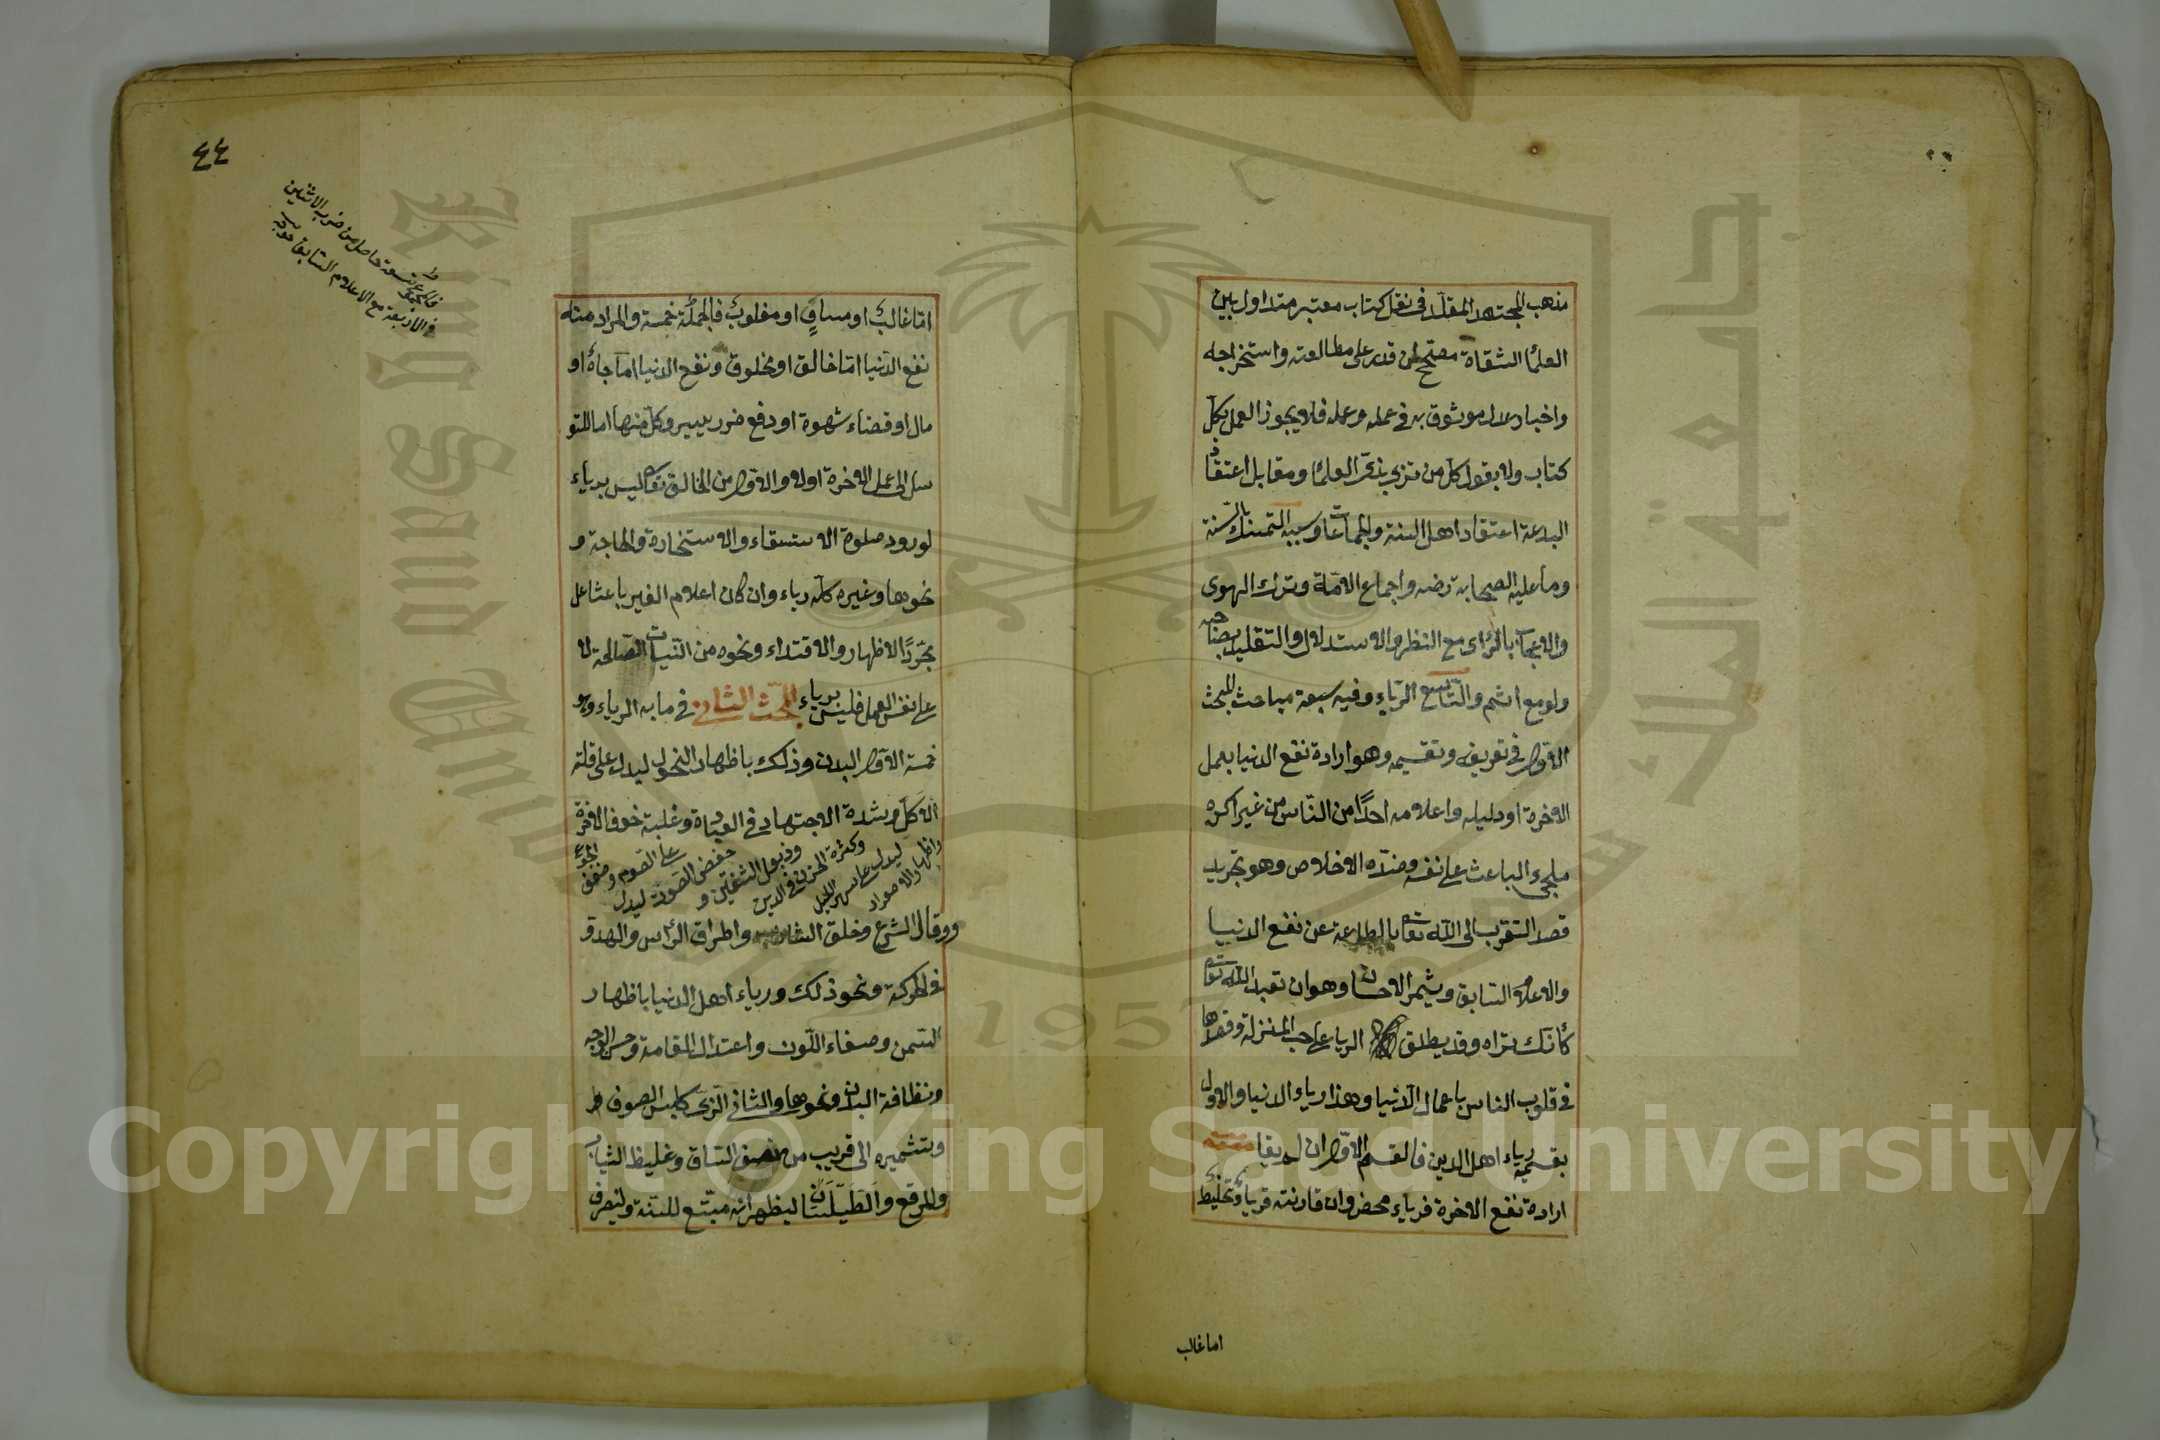 مذهب المجتهد المقلد فى نقل كتاب معتبر متداول بين
العلما الثقاة مصحح لمن قدر على مطالعته واستخراجه
واخبار عدل موثوق به فى علمه وعمله فلا يجوز العمل بكل
كتاب ولا بقول كل من تزي بزي العلما ومقابل اعتقاد
البدعة اعتقاد اهل السنة والجماعات وسببه التمسك بالسنة
وما عليه الصحابة رضه واجماع الامة وترك الهوى
والاعجاب بالرأى مع النظر والاستدلال والتقليد بصاحبه
ولو مع اثم والتاسع الرياء وفيه سبعة مباحث المبحث
الاول فى تعريفه وتقسيمه وهو ارادة نفع الدنيا بعمل
الاخرة او دليله واعلامه احدًا من الناس من غير اكره
ملجىء الباعث على نفسه وضده الاخلاص وهو تجريد
قصد التقرب الى الله تعا بالطاعة عن نفع الدنيا
والاعلام السابق ويثمر الاحسان وهو ان تعبد الله تعا
كأنك تراه وقد يطلق الريا على حب المنزلة وقصدها
فى قلوب الناس باعمال الدنيا وهذا رياء الدنيا والاول
بقسميه رياء اهل الدين فالقسم الاول ان لم يقا
ارادة نفع الاخرة فرياء محض وان قارنته فرياء تخليط
اما غالب
٤٤
اما غالبٌ او مساوٍ او مغلوبٌ فالجملة خمسة والمراد منه
نفع الدنيا اما خالق او مخلوق ونفع الدنيا اما جاهٌ او
مال او قضاء شهوة او دفع ضرر يسير وكل منها اما للتو
سل الى عمل الاخرة اولا والاول من الخالق تعا ليس برياء
لورود صلوة الاستسقاء والاستخارة والحاجة و
نحوها وغيره كله رياء وان كان اعلام الغير باعثا على
مجرد الاظهار والاقتداء ونحوه من النيات الصالحة لا
على نفس العمل فليس برياء المبحث الثانى فى ما به الرياء وهو
خمسة الاول البدن وذلك باظهار النحول ليدل على قلة
الاكل وشدة الاجتهاد فى العبادة وغلبة خوف الاخرة
واظهار الاصفرار ليدل على سهر الليل وكثرة الحزن فى الدين وذبول الشفتين و خفض الصوت ليدل على الصوم وضعف الجوع
ووقار الشرع وحلق الشارب واطراق الرأس والهدو
فى الحركة ونحو ذلك ورياء اهل الدنيا باظهار
السمن وصفاء اللون واعتدال القامة وحسن الوجه
ونظافة البدن ونحوها والثانى الزى كلبس الصوف
وتشميره الى قريب من نصف الساق وغليظ الثياب
والمرقع والطيلسان ليظهر انه متبع للسنة ولتصرف
حاصل من ضرب الاثنين
فى الاربعة مع الاعلام السابق
Copyright © King Saud University
King Saud University
جامعة الملك سعود
1957